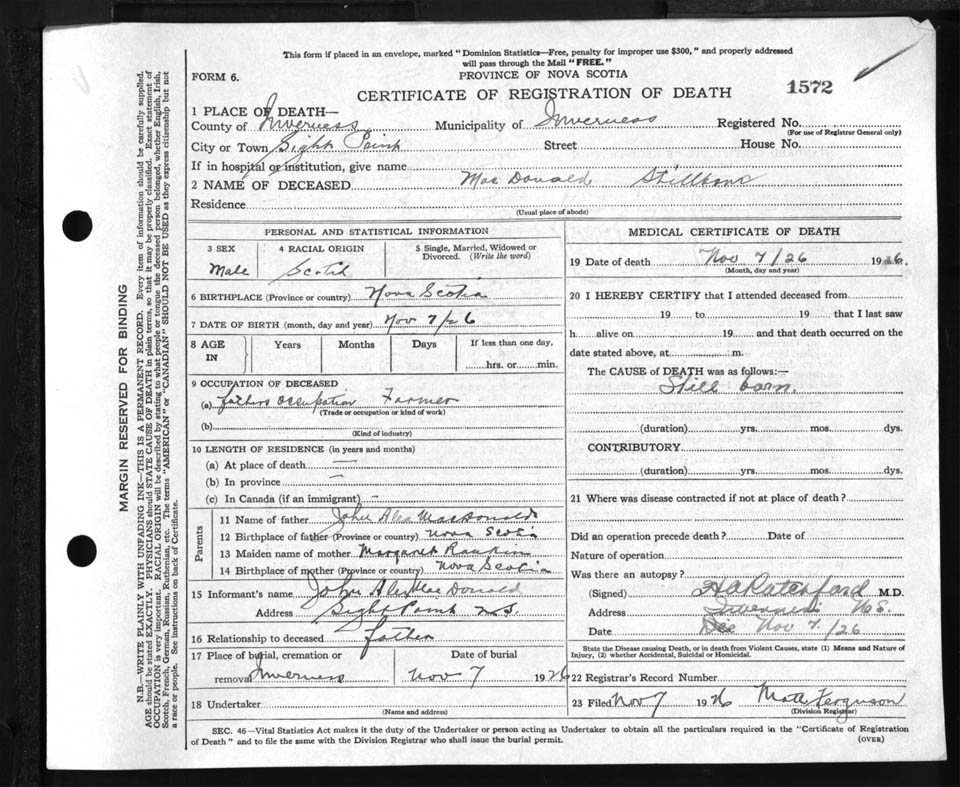 This form if placed in an envelope, marked "Dominion Statistics—Free, penalty for improper use $300," and properly addressed
will pass through the Mail "FREE."
FORM 6.
PROVINCE OF NOVA SCOTIA
CERTIFICATE OF REGISTRATION OF DEATH
1572
1 PLACE OF DEATH—
County of Inverness Municipality of Inverness Registered No.
(For use of Registrar General only)
City or Town Sight Point Street House No.
If in hospital or institution, give name
2 NAME OF DECEASED Mac Donald Stillborn
Residence
(Usual place of abode)
PERSONAL AND STATISTICAL INFORMATION
3 SEX 4 RACIAL ORIGIN 5 Single, Married, Widowed or
Divorced. (Write the word)
Male Scotch
6 BIRTHPLACE (Province or country) Nova Scotia
7 DATE OF BIRTH (month, day and year) Nov 7/26
8 AGE IN Years Months Days If less than one day,
hrs. or min.
9 OCCUPATION OF DECEASED
(a) fathers occupation Farmer
(Trade or occupation or kind of work)
(b)
(Kind of industry)
10 LENGTH OF RESIDENCE (in years and months)
(a) At place of death —
(b) In province —
(c) In Canada (if an immigrant) -
Parents
11 Name of father John Alex MacDonald
12 Birthplace of father (Province or country) Nova Scotia
13 Maiden name of mother Margaret Rankin
14 Birthplace of mother (Province or country) Nova Scotia
15 Informant's name John Alex Mac Donald
Address Sight Point N.S.
16 Relationship to deceased father
17 Place of burial, cremation or Date of burial
removal Inverness Nov 7 1926
18 Undertaker
(Name and address)
MEDICAL CERTIFICATE OF DEATH
19 Date of death Nov 7/26 1926.
(Month, day and year)
20 I HEREBY CERTIFY that I attended deceased from
19 to 19 that I last saw
h alive on 19 and that death occurred on the
date stated above, at m.
The CAUSE of DEATH was as follows:—
Still born.
(duration) yrs. mos. dys.
CONTRIBUTORY
(duration) yrs. mos. dys.
21 Where was disease contracted if not at place of death?
Did an operation precede death? Date of
Nature of operation
Was there an autopsy?
(Signed) H A Ratchford M.D.
Address Inverness N.S.
Date Dec Nov 7/26
State the Disease causing Death, or in death from Violent Causes, state (1) Means and Nature of
Injury, (2) whether Accidental, Suicidal or Homicidal.
22 Registrar's Record Number
23 Filed Nov 7 1926 Matt Ferguson
(Division Registrar)
SEC. 46—Vital Statistics Act makes it the duty of the Undertaker or person acting as Undertaker to obtain all the particulars required in the "Certificate of Registration
of Death" and to file the same with the Division Registrar who shall issue the burial permit.
(OVER)
MARGIN RESERVED FOR BINDING
N.B.—WRITE PLAINLY WITH UNFADING INK—THIS IS A PERMANENT RECORD. Every item of information should be carefully supplied.
AGE should be stated EXACTLY. PHYSICIANS should STATE CAUSE OF DEATH in plain terms, so that it may be properly classified. Exact statement of
OCCUPATION is very important. RACIAL ORIGIN will be described by stating to what people or tongue the deceased person belonged, whether English, Irish,
Scotch, French, German, Russian, Ruthenian, etc. The terms "AMERICAN" or "CANADIAN" SHOULD NOT BE USED as they express citizenship but not
a race or people. See instructions on back of Certificate.